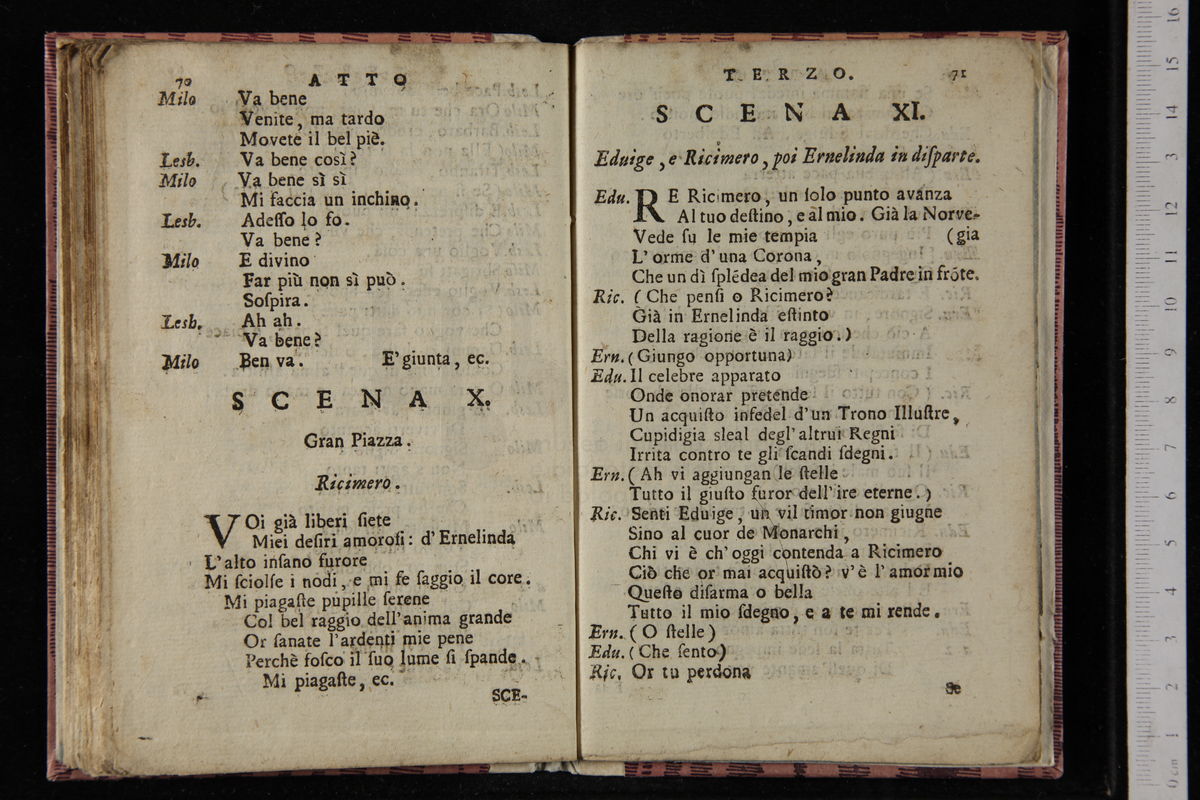 70 ATTO
Milo Va bene
Venite, ma tardo
Movete il bel piè.
Lesb. Va bene così?
Milo Va bene sì sì
Mi faccia un inchino.
Lesb. Adeſſo lo fo.
Va bene?
Milo E divino
Far più non sì può.
Soſpira.
Lesb. Ah ah.
Va bene?
Milo Ben va. E' giunta, ec.
SCENA X.
Gran Piazza.
Ricimero.
VOi già liberi ſiete
Miei deſiri amoroſi: d'Ernelinda
L'alto inſano furore
Mi ſciolſe i nodi, e mi fe ſaggio il core.
Mi piagaſte pupille ſerene
Col bel raggio dell'anima grande
Or ſanate l'ardenti mie pene
Perchè foſco il ſuo lume ſi ſpande.
Mi piagaſte, ec.
SCE-
TERZO. 71
SCENA XI.
Eduige, e Ricimero, poi Ernelinda in diſparte.
Edu. RE Ricimero, un ſolo punto avanza
Al tuo deſtino, e al mio. Già la Norve-
Vede ſu le mie tempia (gia
L'orme d'una Corona,
Che un dì ſplédea del mio gran Padre in frôte.
Ric. (Che penſi o Ricimero?
Già in Ernelinda eſtinto
Della ragione è il raggio.)
Ern. (Giungo opportuna)
Edu. Il celebre apparato
Onde onorar pretende
Un acquiſto infedel d'un Trono Illuſtre,
Cupidigia sleal degl'altrui Regni
Irrita contro te gli ſcandi ſdegni.
Ern. (Ah vi aggiungan le ſtelle
Tutto il giuſto furor dell'ire eterne.)
Ric. Senti Eduige, un vil timor non giugne
Sino al cuor de Monarchi,
Chi vi è ch'oggi contenda a Ricimero
Ciò che or mai acquiſtò? v'è l'amor mio
Queſto diſarma o bella
Tutto il mio ſdegno, e a te mi rende.
Ern. (O ſtelle)
Edu. (Che ſento)
Ric. Or tu perdona
Se
16
15
14
13
12
11
10
9
8
7
6
5
4
3
2
1
0 cm